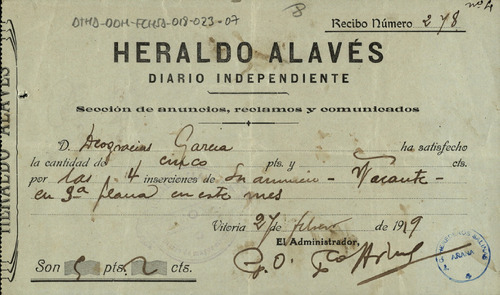 DTHD-DDH-FCHSD-018-023-07
8
nº 4
Recibo Número 278
HERALDO ALAVÉS
DIARIO INDEPENDIENTE
Sección de anuncios, reclamos y comunicados
D. Deogracias Garcia ha satisfecho
la cantidad de cinco pts. y cts.
por las 4 inserciones de su anuncio - Vacante -
en 3ª plana en este mes
Vitoria 27 de febrero de 1919
El Administrador,
P.O.
Son 5 pts. cts.
HERALDO ALAVÉS
ARANA